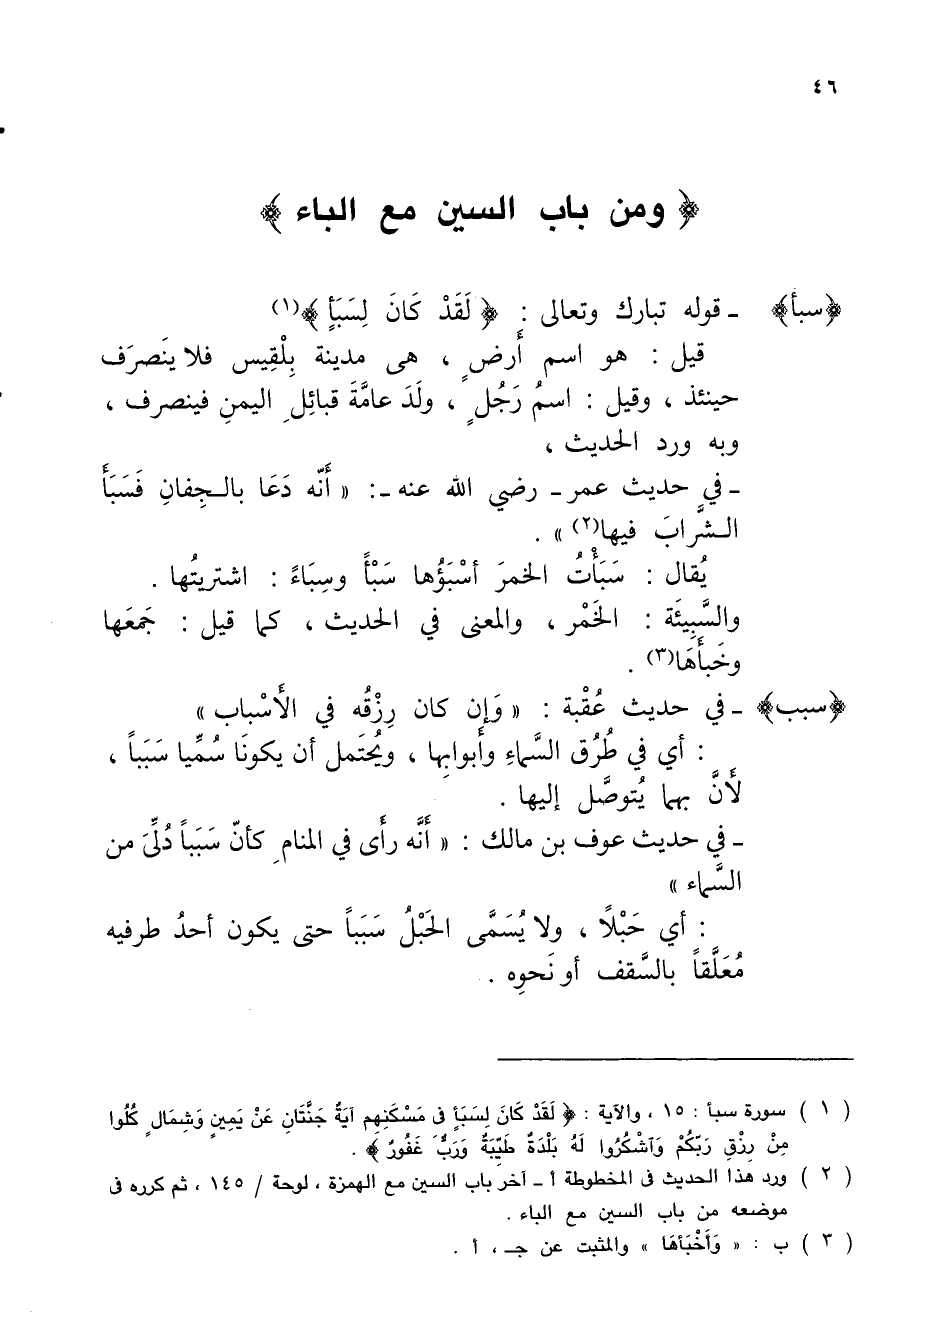 ٤٦
﴿ ومن باب السين مع الباء ﴾
﴿سبأ﴾ ـ قوله تبارك وتعالى : ﴿ لَقَدْ كَانَ لِسَبَأٍ ﴾(١)
قيل : هو اسم أَرضٍ ، هى مدينة بِلْقِيس فلا ينَصرَف
حينئذ ، وقيل : اسمُ رَجُلٍ ، ولَدَ عامَّةَ قبائِلِ اليمنِ فينصرف ،
وبه ورد الحديث ،
ـ في حديث عمر ـ رضي الله عنه ـ: « أَنَّه دَعَا بالـجِفانِ فَسَبَأَ
الـشَّرابَ فيها(٢) » .
يُقال : سَبَأْتُ الخمرَ أسْبَؤُها سَبْأً وسِبَاءً : اشتريتُها .
والسَّبِيئَة : الخَمْر ، والمعنى في الحديث ، كما قيل : جَمعَها
وخَبأَهَا(٣) .
﴿سبب﴾ ـ في حديث عُقْبة : « وَإن كان رِزْقُه في الأَسْباب »
: أي في طُرُق السَّماءِ وأَبوابها ، ويُحتَمل أن يكونَا سُمِّيا سَبَباً ،
لأَنَّ بهما يُتوصَّل إليها .
ـ في حديث عوف بن مالك : « أَنَّه رأَى في المنامِ كأنّ سَبَباً دُلِّىَ من
السَّماء »
: أي حَبْلاً ، ولا يُسَمَّى الحَبْلُ سَبَباً حتى يكون أحدُ طرفيه
مُعَلَّقاً بالسَّقف أو نَحوِه .
( ١ ) سورة سبأ : ١٥ ، والآية : ﴿ لَقَدْ كَانَ لِسَبَأٍ فى مَسْكَنِهِم آيَةٌ جَنَّتَانِ عَنْ يَمِينٍ وَشِمَالٍ كُلُوا
مِنْ رِزْقِ رَبِّكُمْ وَآشْكُرُوا لَهُ بَلْدَةٌ طَيِّبَةٌ وَرَبٌّ غَفُورٌ ﴾ .
( ٢ ) ورد هذا الحديث فى المخطوطة أ ـ آخر باب السين مع الهمزة ، لوحة / ١٤٥ ، ثم كرره فى
موضعه من باب السين مع الباء .
( ٣ ) ب : « وَأَخْبَأهَا » والمثبت عن جـ ، أ .